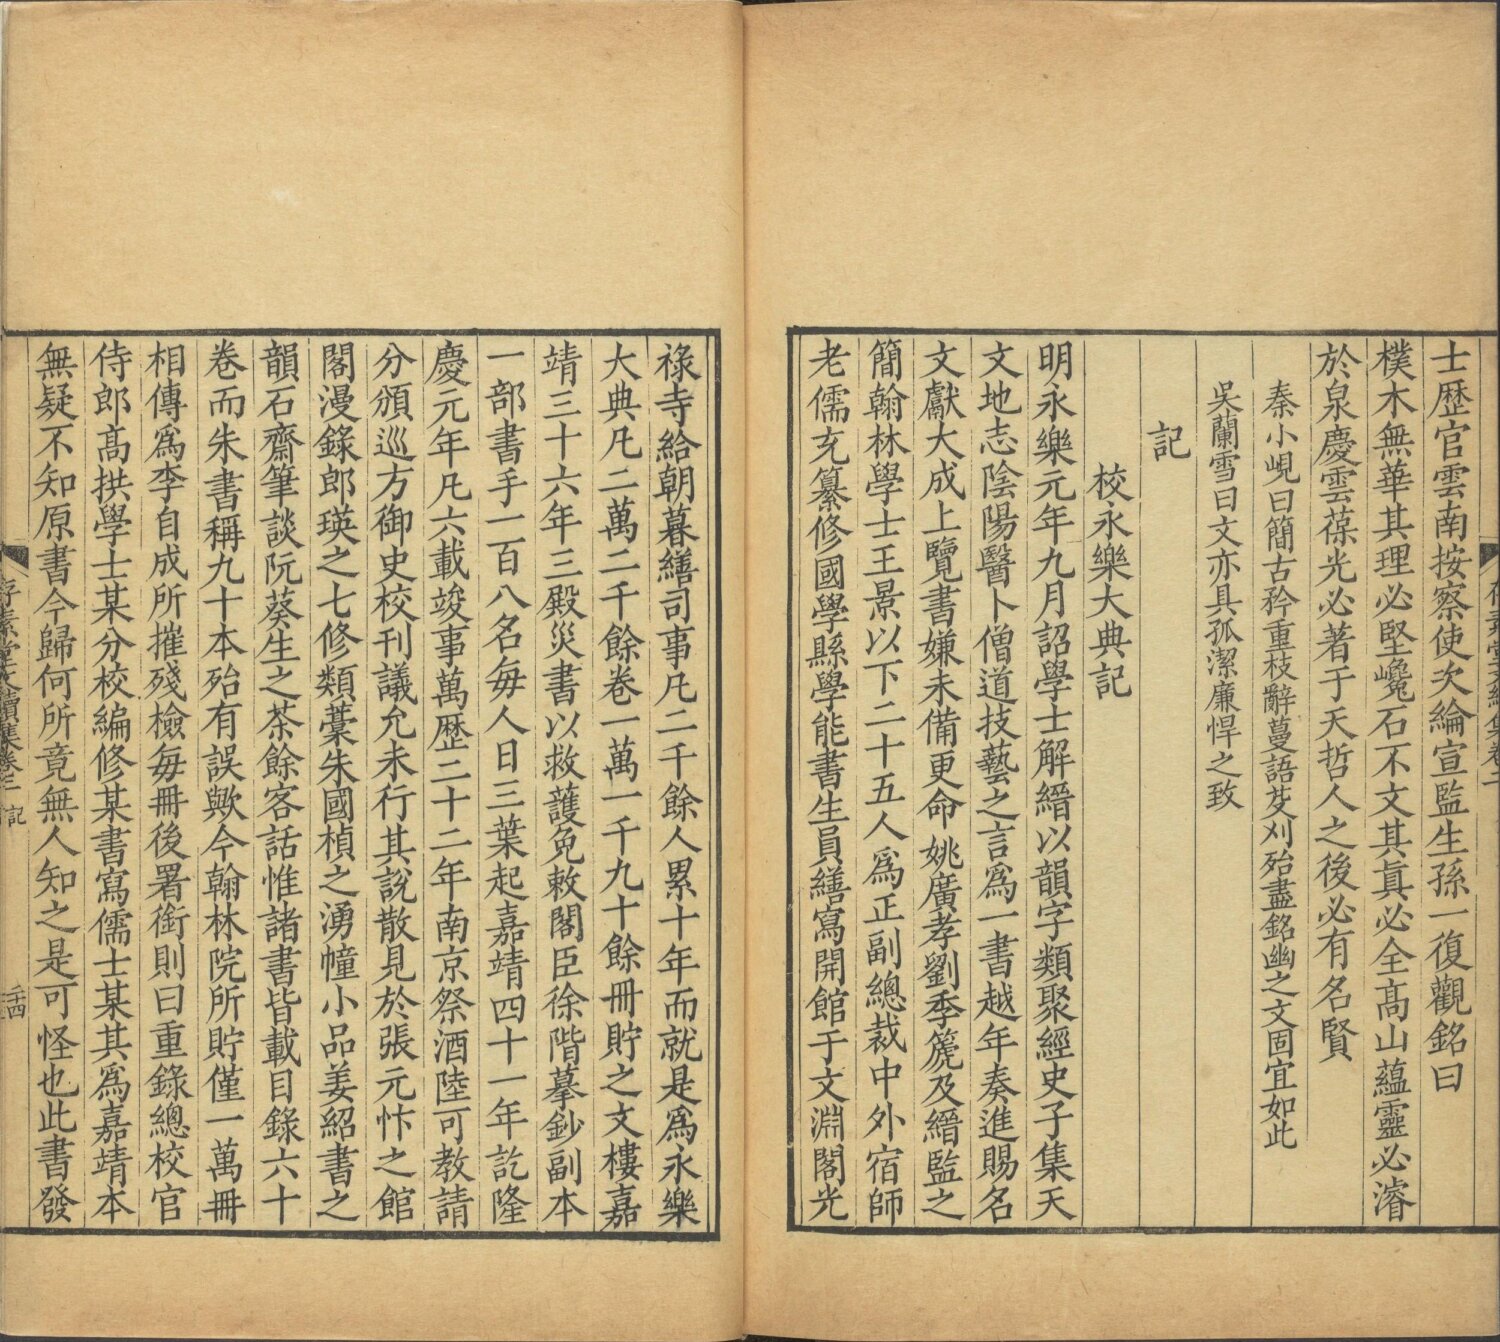 存素堂文續集卷二
士歷官雲南按察使次綸宣監生孫一復觀銘曰
樸木無華其理必堅巉石不文其真必全高山蘊靈必濬
於泉慶雲葆光必著于天哲人之後必有名賢
秦小峴曰簡古矜重枝辭蔓語芟刈殆盡銘幽之文固宜如此
吳蘭雪曰文亦具孤潔廉悍之致
記
校永樂大典記
明永樂元年九月詔學士解縉以韻字類聚經史子集天
文地志陰陽醫卜僧道技藝之言爲一書越年奏進賜名
文獻大成上覽書嫌未備更命姚廣孝劉季箎及縉監之
簡翰林學士王景以下二十五人爲正副總裁中外宿師
老儒充纂修國學縣學能書生員繕寫開館于文淵閣光
祿寺給朝暮繕司事凡二千餘人累十年而就是爲永樂
大典凡二萬二千餘卷一萬一千九十餘冊貯之文樓嘉
靖三十六年三殿災書以救護免敕閣臣徐階摹鈔副本
一部書手一百八名每人日三葉起嘉靖四十一年訖隆
慶元年凡六載竣事萬歷二十二年南京祭酒陸可教請
分頒巡方御史校刊議允未行其說散見於張元忭之館
閣漫錄郎瑛之七修類藁朱國楨之湧幢小品姜紹書之
韻石齋筆談阮葵生之茶餘客話惟諸書皆載目錄六十
卷而朱書稱九十本殆有誤歟今翰林院所貯僅一萬冊
相傳爲李自成所摧殘檢每冊後署銜則曰重錄總校官
侍郎高拱學士某分校編修某書寫儒士某其爲嘉靖本
無疑不知原書今歸何所竟無人知之是可怪也此書發
存素堂文續集卷二 記
二十四